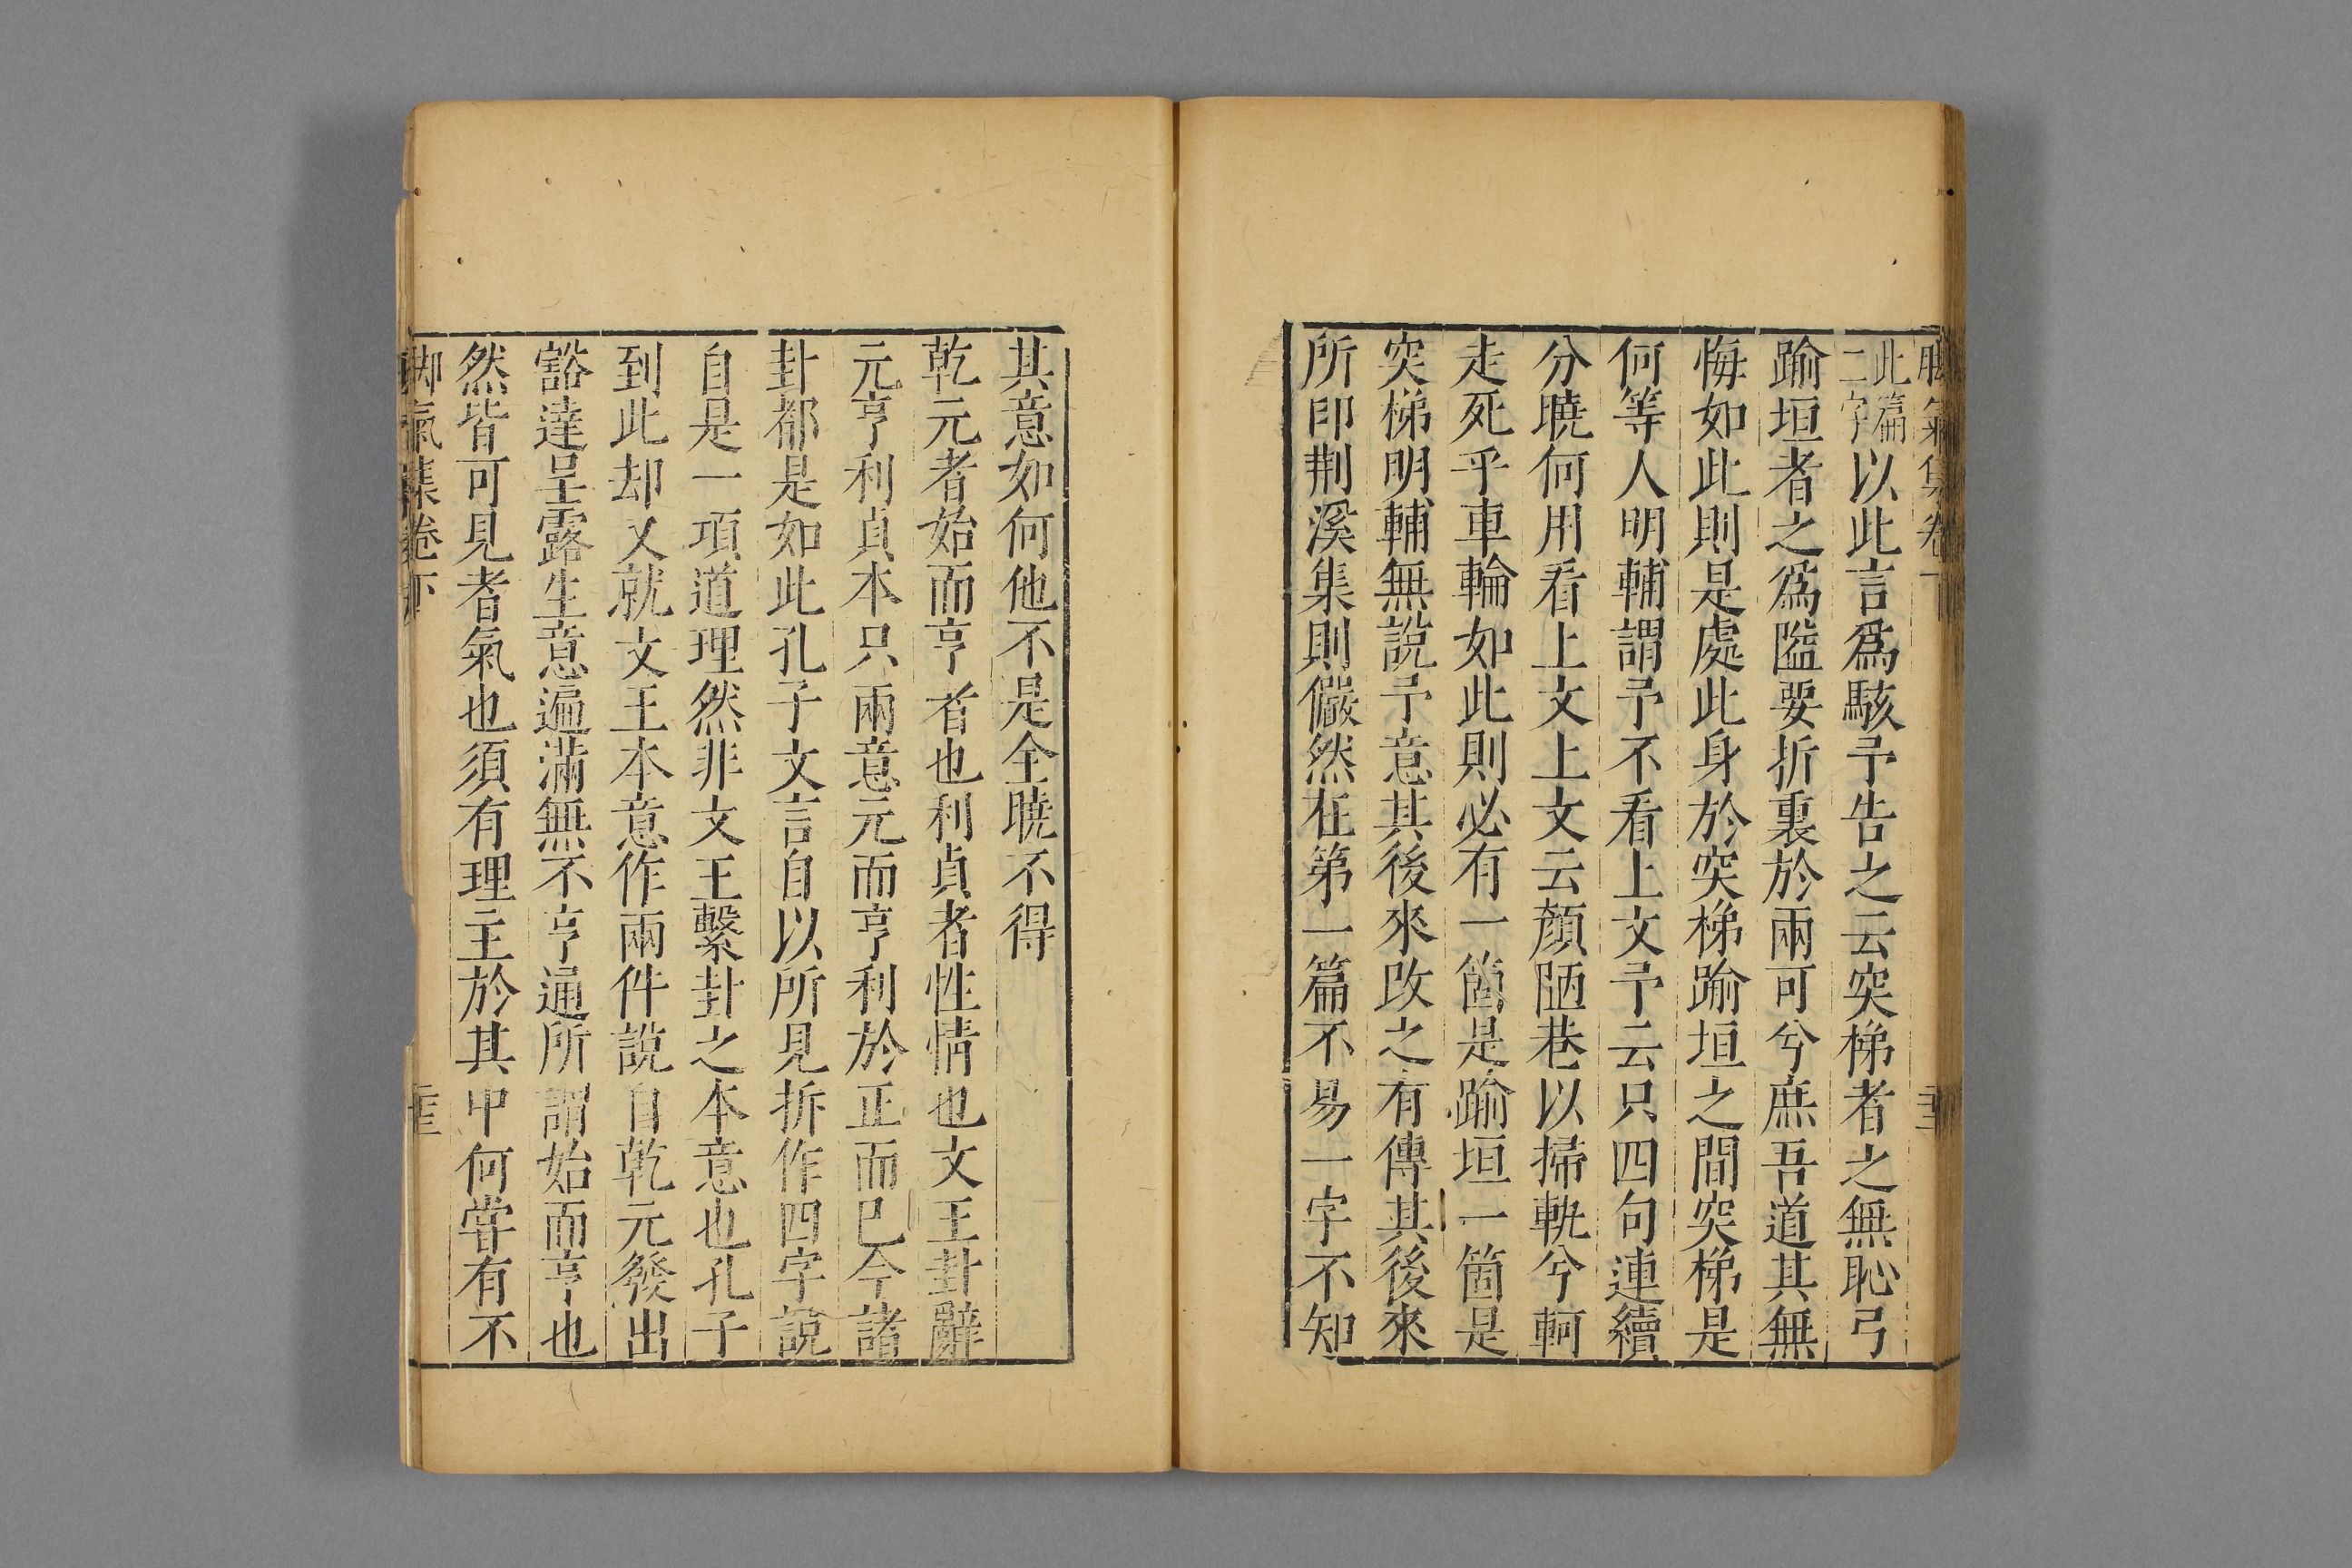 脚氣集卷下
此篇二字以此言爲駭予告之云突梯者之無恥弓
踰垣者之爲隘要折裏於兩可兮庶吾道其無
悔如此則是處此身於突梯踰垣之間突梯是
何等人明輔謂予不看上文予云只四句連續
分曉何用看上文上文云顏陋巷以掃軌兮軻
走死乎車輪如此則必有一箇是踰垣一箇是
突梯明輔無說予意其後來改之有傳其後來
所印荆溪集則儼然在第一篇不易一字不知
其意如何他不是全曉不得
乾元者始而亨者也利貞者性情也文王卦辭
元亨利貞本只兩意元而亨利於正而已今諸
卦都是如此孔子文言自以所見拆作四字說
自是一項道理然非文王繫卦之本意也孔子
到此却又就文王本意作兩件說自乾元發出
豁達呈露生意遍滿無不亨通所謂始而亨也
然皆可見者氣也須有理主於其中何嘗有不
脚氣集卷下